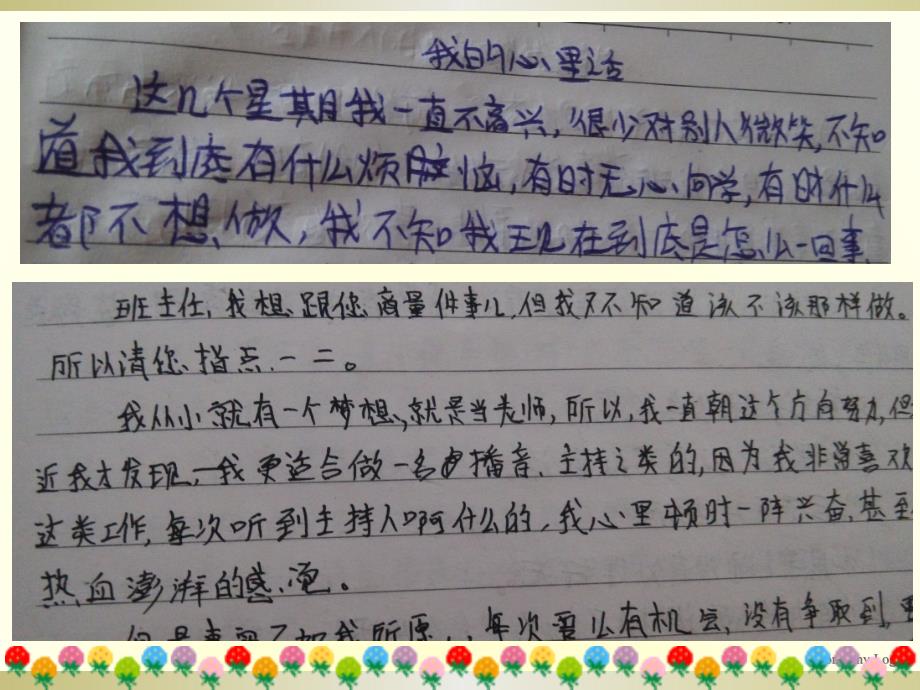 我的心里话
这几个星期我一直不高兴,很少对别人微笑,不知
道我到底有什么烦恼,有时无心向学,有时什么
都不想做,我不知我现在到底是怎么一回事.
班主任,我想跟您商量件事儿,但我又不知道该不该那样做。
所以请您指点一二。
我从小就有一个梦想,就是当老师,所以,我一直朝这个方向努力,但
近我才发现,我更适合做一名播音、主持之类的,因为我非常喜欢
这类工作,每次听到主持人啊什么的,我心里顿时一阵兴奋、甚至
热血澎湃的感觉。
但是事实不如我所愿,每次要么有机会,没有争取到,